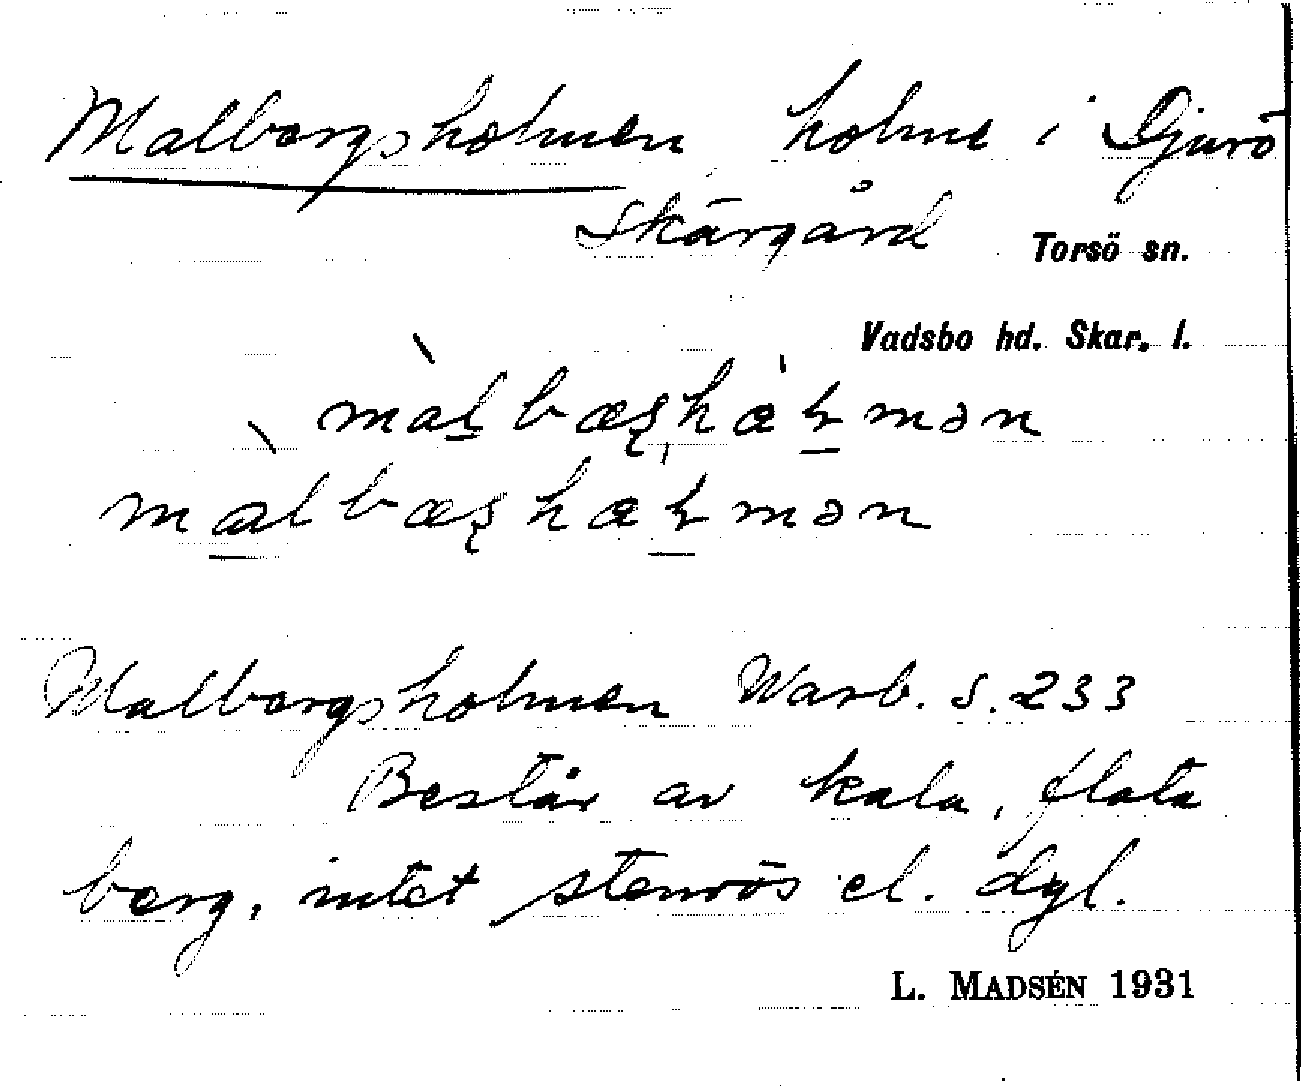 Malbergsholmen holme i Djurö
Skärgård
Torsö sn.
Vadsbo hd. Skar. l.
Malbergsholmen Warb. S. 233
Består av kala, flata
berg, intet stenrös el. dyl.
L. MADSÉN 1931